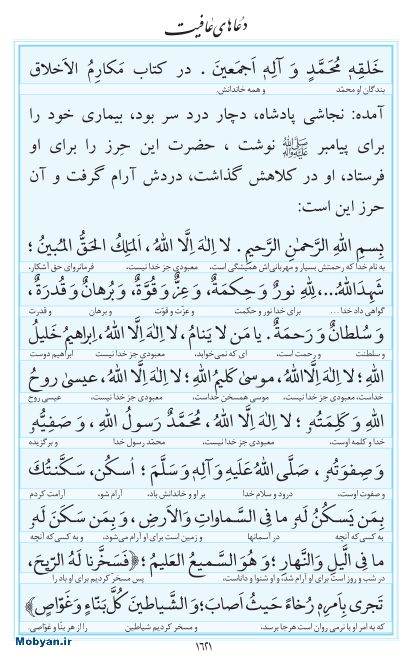 دعاهای عافیت
خَلقِهٖ مُحَمَّدٍ وَ آلِهٖ اَجمَعینَ . در کتاب مَکارِمُ الاَخلاق
بندگان او محمّد و همه خاندانش.
آمده: نجاشی پادشاه، دچار درد سر بود، بیماری خود را
برای پیامبر ﷺ نوشت ، حضرت این حِرز را برای او
فرستاد، او در کلاهش گذاشت، دردش آرام گرفت و آن
حرز این است:
بِسمِ اللهِ الرَّحمٰنِ الرَّحیمِ . لا اِلٰهَ اِلَّا اللهُ ، المَلِكُ الحَقُّ المُبینُ ؛
به نام خدا که رحمتش بسیار و مهربانی‌اش همیشگی است، معبودی جز خدا نیست، فرمانروای حق آشکار،
شَهِدَ اللهُ...، لِلّٰهِ نورٌ وَ حِکمَةٌ، وَ عِزٌّ وَ قُوَّةٌ، وَ بُرهانٌ وَ قُدرَةٌ،
گواهی داد خدا ... برای خدا نور و حکمت و عزت و قوّت و برهان و قدرت
وَ سُلطانٌ وَ رَحمَةٌ. یا مَن لا یَنامُ، لا اِلٰهَ اِلَّا اللهُ، اِبراهیمُ خَلیلُ
و سلطنت و رحمت است، ای که نمی‌خوابد، معبودی جز خدا نیست ابراهیم دوست
اللهِ؛ لا اِلٰهَ اِلَّا اللهُ، موسیٰ کَلیمُ اللهِ؛ لا اِلٰهَ اِلَّا اللهُ، عیسیٰ روحُ
خداست، معبودی جز خدا نیست، موسی همسخن خداست، معبودی جز خدا نیست، عیسی روح
اللهِ وَ کَلِمَتُهٗ؛ لا اِلٰهَ اِلَّا اللهُ، مُحَمَّدٌ رَسولُ اللهِ ، وَ صَفِیُّهٗ
خدا و کلمه اوست، معبودی جز خدا نیست، محمّد رسول خدا و برگزیده
وَ صِفوَتُهٗ ، صَلَّی اللهُ عَلَیهِ وَ آلِهٖ وَ سَلَّمَ ؛ اُسکُن، سَکَّنتُكَ
و صفوت اوست، درود و سلام خدا بر او و خاندانش باد، آرام شو، آرامت کردم
بِمَن یَسکُنُ لَهٗ ما فِی السَّماواتِ وَ الاَرضِ، وَ بِمَن سَکَنَ لَهٗ
به کسی که آنچه در آسمانها و زمین است برای او آرام می‌شود، و به کسی که آنچه
ما فِی الَّیلِ وَ النَّهارِ ؛ وَ هُوَ السَّمیعُ العَلیمُ ؛ ﴿فَسَخَّرنا لَهُ الرّیحَ،
در شب و روز است برای او آرام شد، و او شنوا و داناست، پس مسخر کردیم برای او باد را
تَجری بِاَمرِهٖ رُخاءً حَیثُ اَصابَ؛ وَ الشَّیاطینَ کُلَّ بَنّاءٍ وَ غَوّاصٍ﴾
که به امر او با نرمی روان است هرجا برسد، و مسخر کردیم شیاطین را از هر بنّا و غوّاصی.
۱۶۲۱
Mobyan.ir